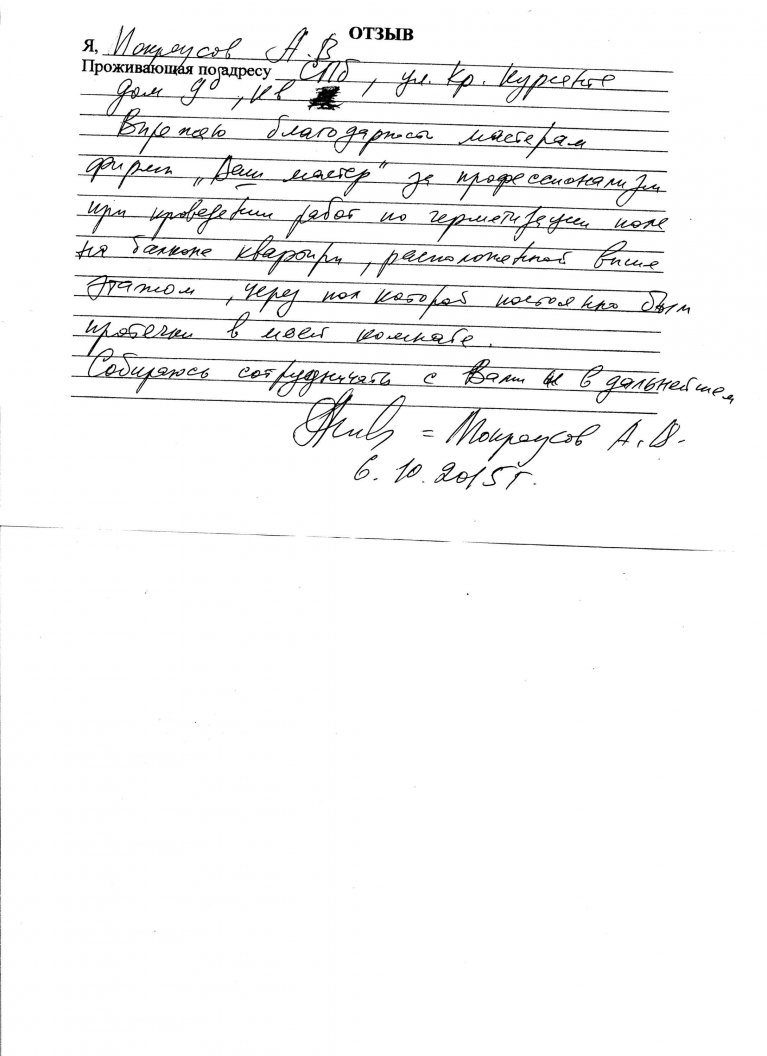 ОТЗЫВ
Я, Мокроусов А.В
Проживающая по адресу СПб, ул. Кр. Курсанта
дом 9, кв
Выражаю благодарность мастерам
фирмы „Ваш мастер" за профессионализм
при проведении работ по герметизации пола
на балконе квартиры, расположенной выше
этажом, через пол которой постоянно были
протечки в моей комнате.
Собираюсь сотрудничать с Вами и в дальнейшем
= Мокроусов А.В.
6.10.2015г.